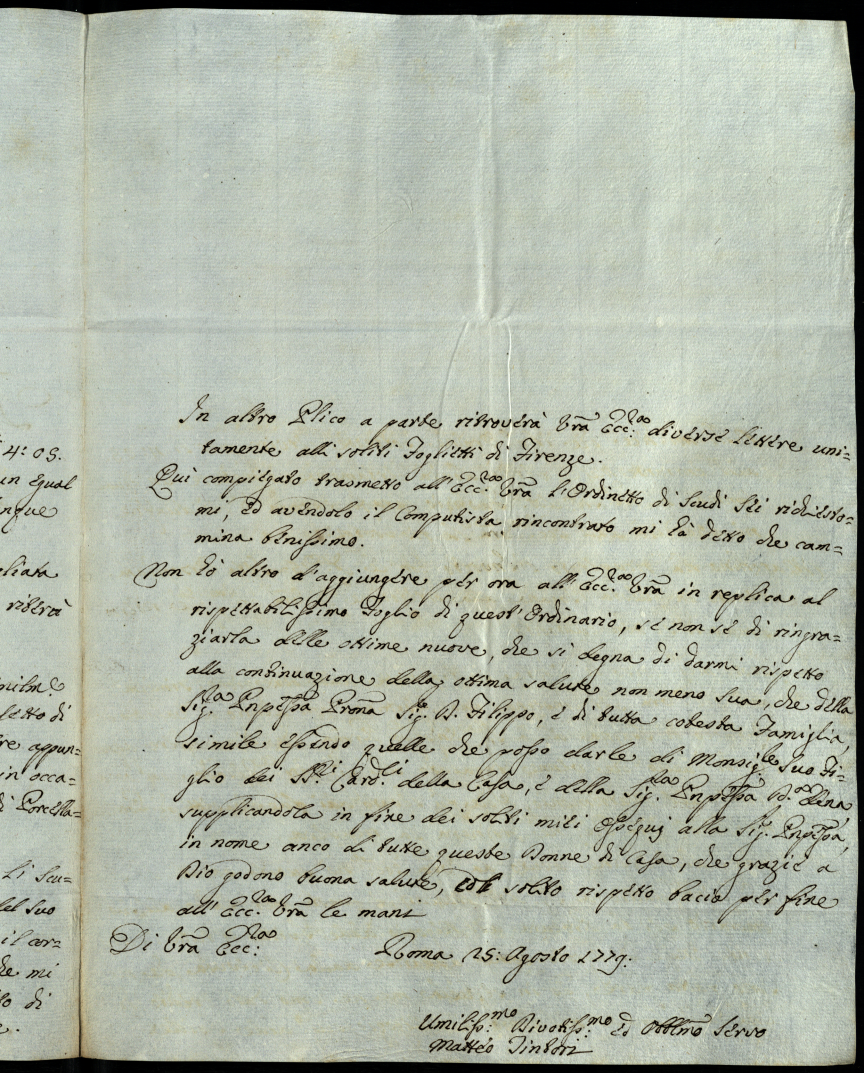 4: 05.
un egual
nque
gliata
riterà
letto di
re appun=
in occa=
di Porcella=
Li Scu=
del suo
il cor=
he mi
to di
In altro Plico a parte ritroverà Vrã Ecc.za diverse lettere uni=
tamente alli soliti Foglietti di Firenze.
Qui compiegato trasmetto all'Ecc.za Vrã l'Ordinetto di Scudi Sei richiesto=
mi, ed avendolo il Computista rincontrato mi hà detto che cam=
mina benissimo.
Non hò altro d'aggiungere per ora all'Ecc.za Vrã in replica al
rispettabilissimo Foglio di quest'Ordinario, se non se di ringra=
ziarla delle ottime nuove, che si degna di darmi rispetto
alla continuazione della ottima salute non meno sua, che della
Sig.ra Pnpessa Prona Sig. D. Filippo, e di tutta cotesta Famiglia,
simile essendo quelle che posso darle di Monsig.re suo Fi=
glio dei SS.ri Card.li della Casa, e della Sig.ra Pnpessa D. Lena
supplicandola in fine dei soliti miei ossequj alla Sig. Pnpessa,
in nome anco di tutte queste Donne di Casa, che grazie a
Dio godono buona salute, col solito rispetto bacio per fine
all'Ecc.za Vrã le mani
Di Vrã Ecc.za Roma 25: Agosto 1779.
Umiliss.mo Divotiss.mo ed Obblmo Servo
Matteo Tintori